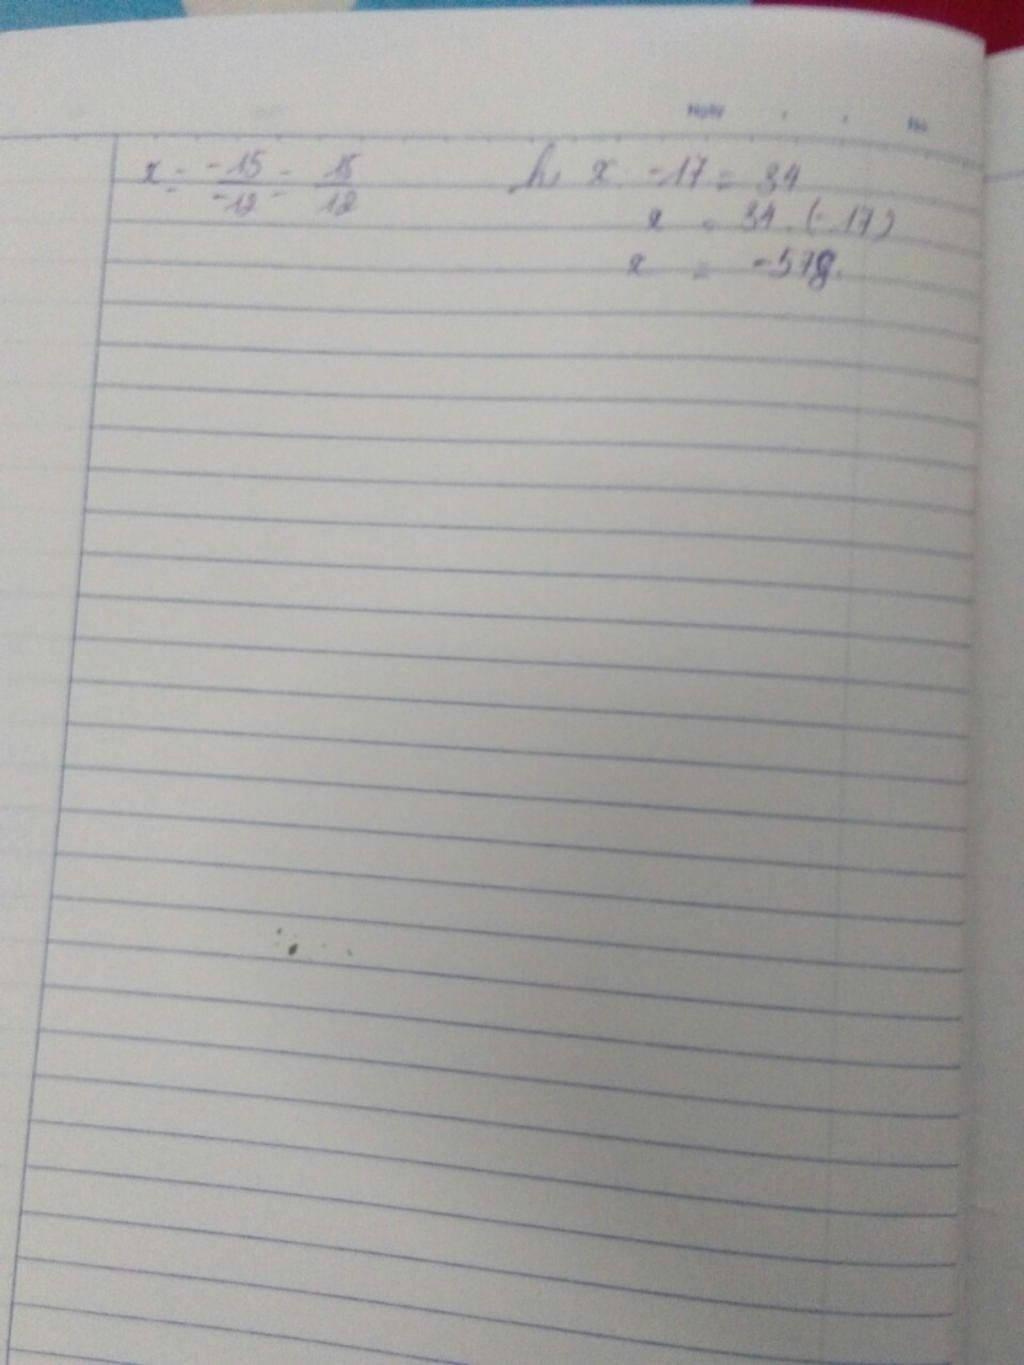 Ngày No.
x = -15/-12 = 15/12
h, x : -17 = 34
x = 34 . (-17)
x = -578.